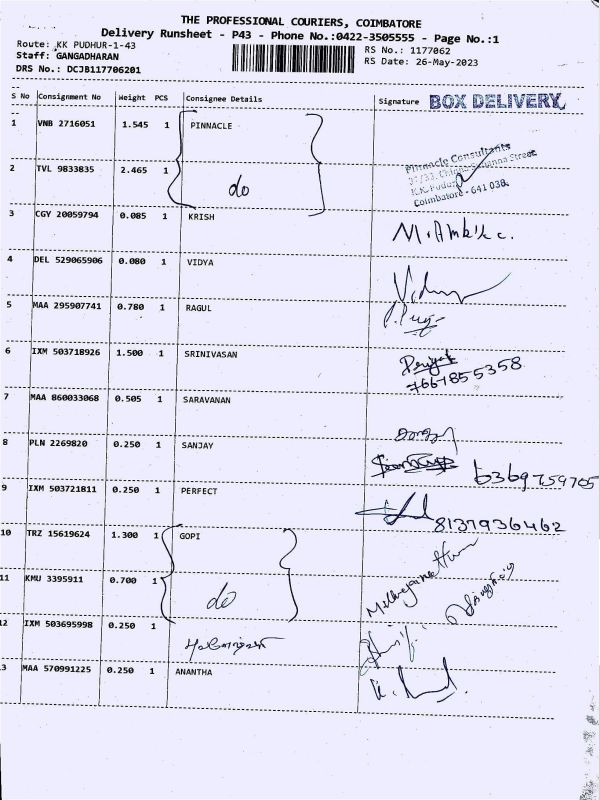 THE PROFESSIONAL COURIERS, COIMBATORE
Delivery Runsheet - P43 - Phone No.:0422-3505555 - Page No.:1
Route: KK PUDHUR-1-43
RS No.: 1177062
Staff: GANGADHARAN
RS Date: 26-May-2023
DRS No.: DCJB117706201
S No Consignment No Weight PCS Consignee Details Signature BOX DELIVERY
1 VNB 2716051 1.545 1 PINNACLE
2 TVL 9833835 2.465 1 do
Pinnacle Consultants
Street
K.K. Pudur
Coimbatore - 641 038.
3 CGY 20059794 0.085 1 KRISH
4 DEL 529065906 0.080 1 VIDYA
5 MAA 295907741 0.780 1 RAGUL
6 IXM 503718926 1.500 1 SRINIVASAN
7667855358
7 MAA 860033068 0.505 1 SARAVANAN
8 PLN 2269820 0.250 1 SANJAY
6369759705
9 IXM 503721811 0.250 1 PERFECT
8137936462
10 TRZ 15619624 1.300 1 GOPI
11 KMU 3395911 0.700 1 do
12 IXM 503695998 0.250 1
13 MAA 570991225 0.250 1 ANANTHA